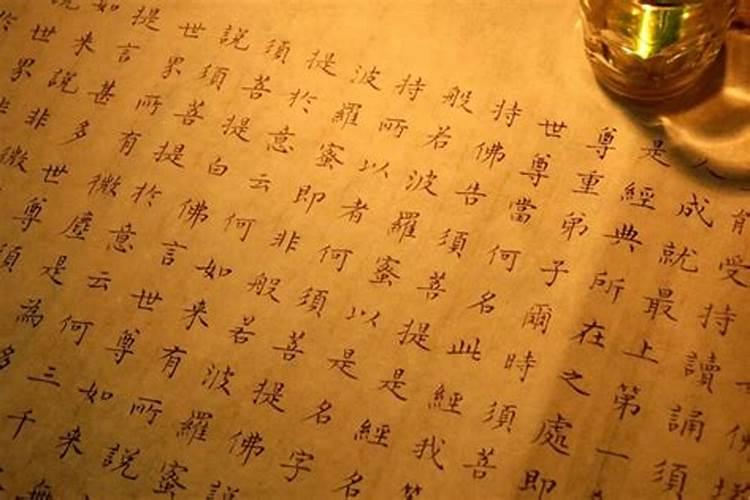 受持讀誦須
人成就最上第一
是經典所在之處即
尊重第子爾時須菩
世尊當何名此經我
持佛告須菩提是經名
般若波羅蜜以是名字
持所以者何須菩提佛說
波羅蜜即非般若波羅蜜
提於意云何如来有所說
須菩提白佛言世尊如来
說須菩提於意云何三千
世界所有微塵是為多
提言甚多世尊須
如来說非微
說世界非
於